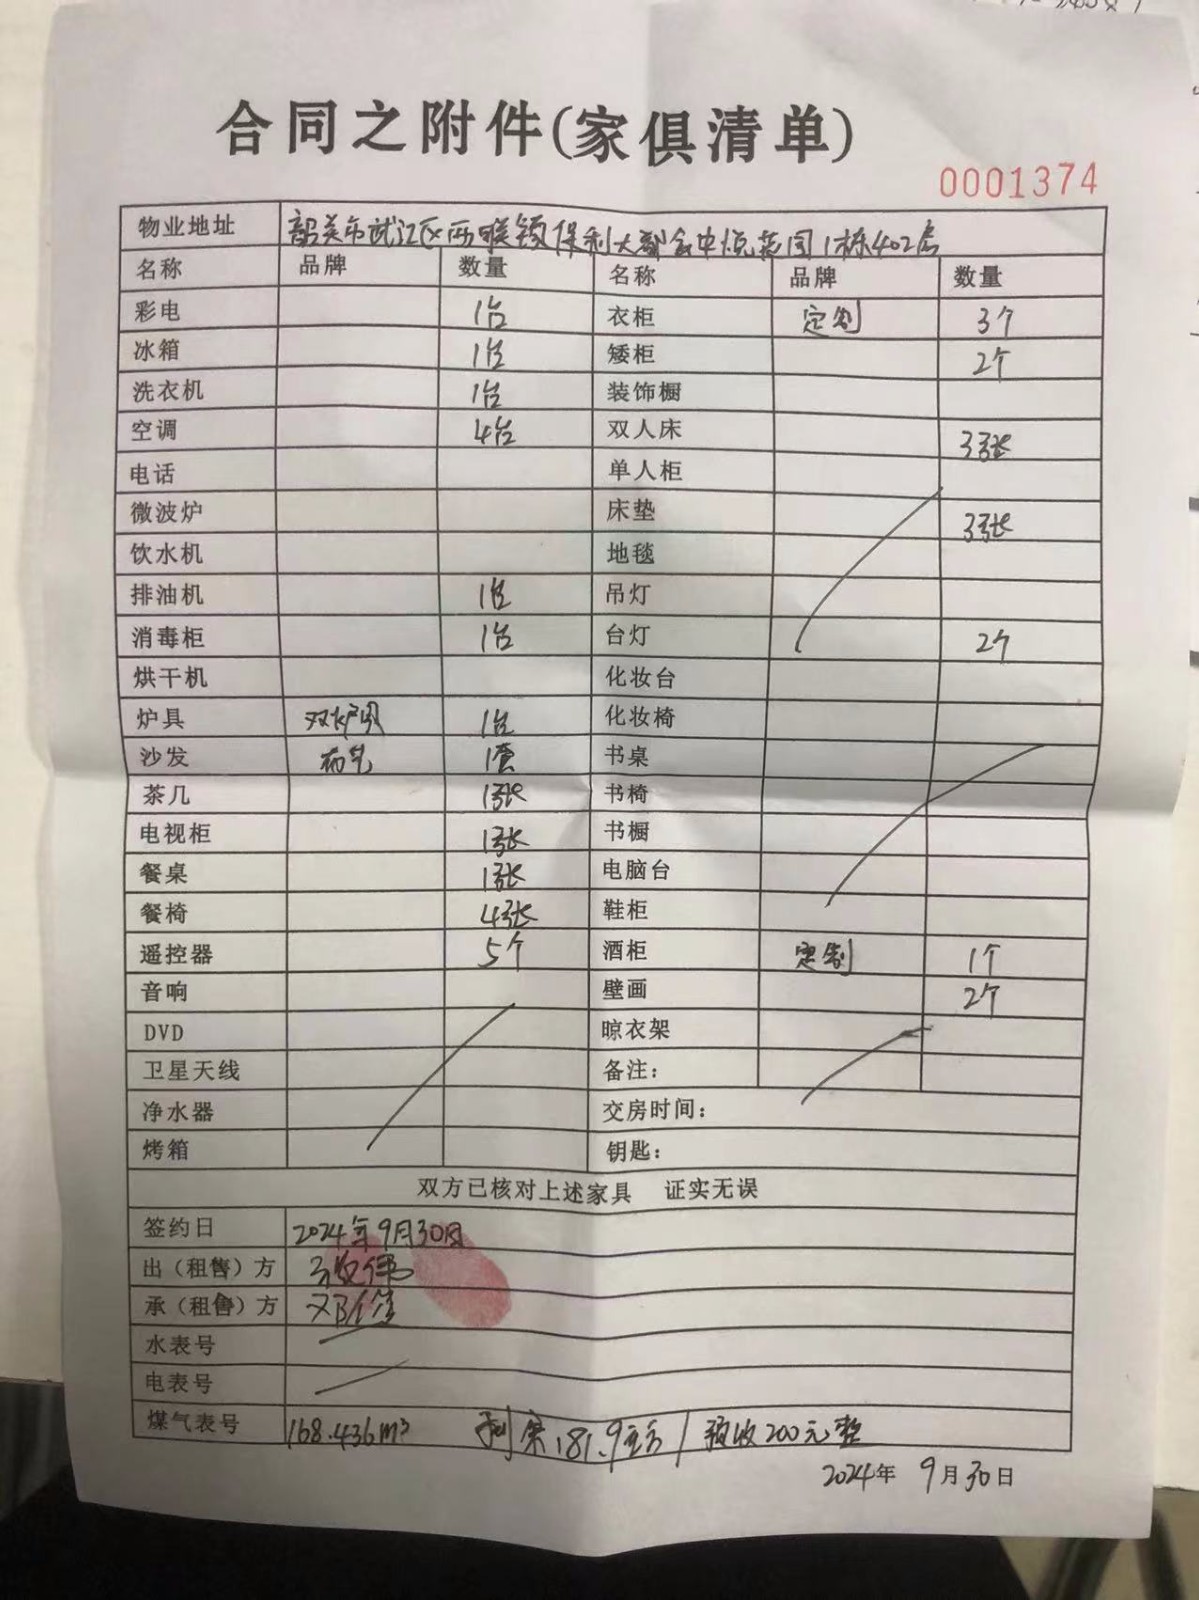 合同之附件(家俱清单)
0001374
物业地址 韶关市武江区西联镇保利大都会中悦花园1栋402房
名称 品牌 数量 名称 品牌 数量
彩电 1台 衣柜 定制 3个
冰箱 1台 矮柜 2个
洗衣机 1台 装饰橱
空调 4台 双人床 3张
电话 单人柜
微波炉 床垫 3张
饮水机 地毯
排油机 1台 吊灯
消毒柜 1台 台灯 2个
烘干机 化妆台
炉具 双炉具 1台 化妆椅
沙发 布艺 1套 书桌
茶几 1张 书椅
电视柜 1张 书橱
餐桌 1张 电脑台
餐椅 4张 鞋柜
遥控器 5个 酒柜 定制 1个
音响 壁画 2个
DVD 晾衣架
卫星天线 备注：
净水器 交房时间：
烤箱 钥匙：
双方已核对上述家具 证实无误
签约日 2024年9月30日
出（租售）方
承（租售）方
水表号
电表号
煤气表号 168.436m³ 剩余181.9 / 预收200元整
2024年 9月30日